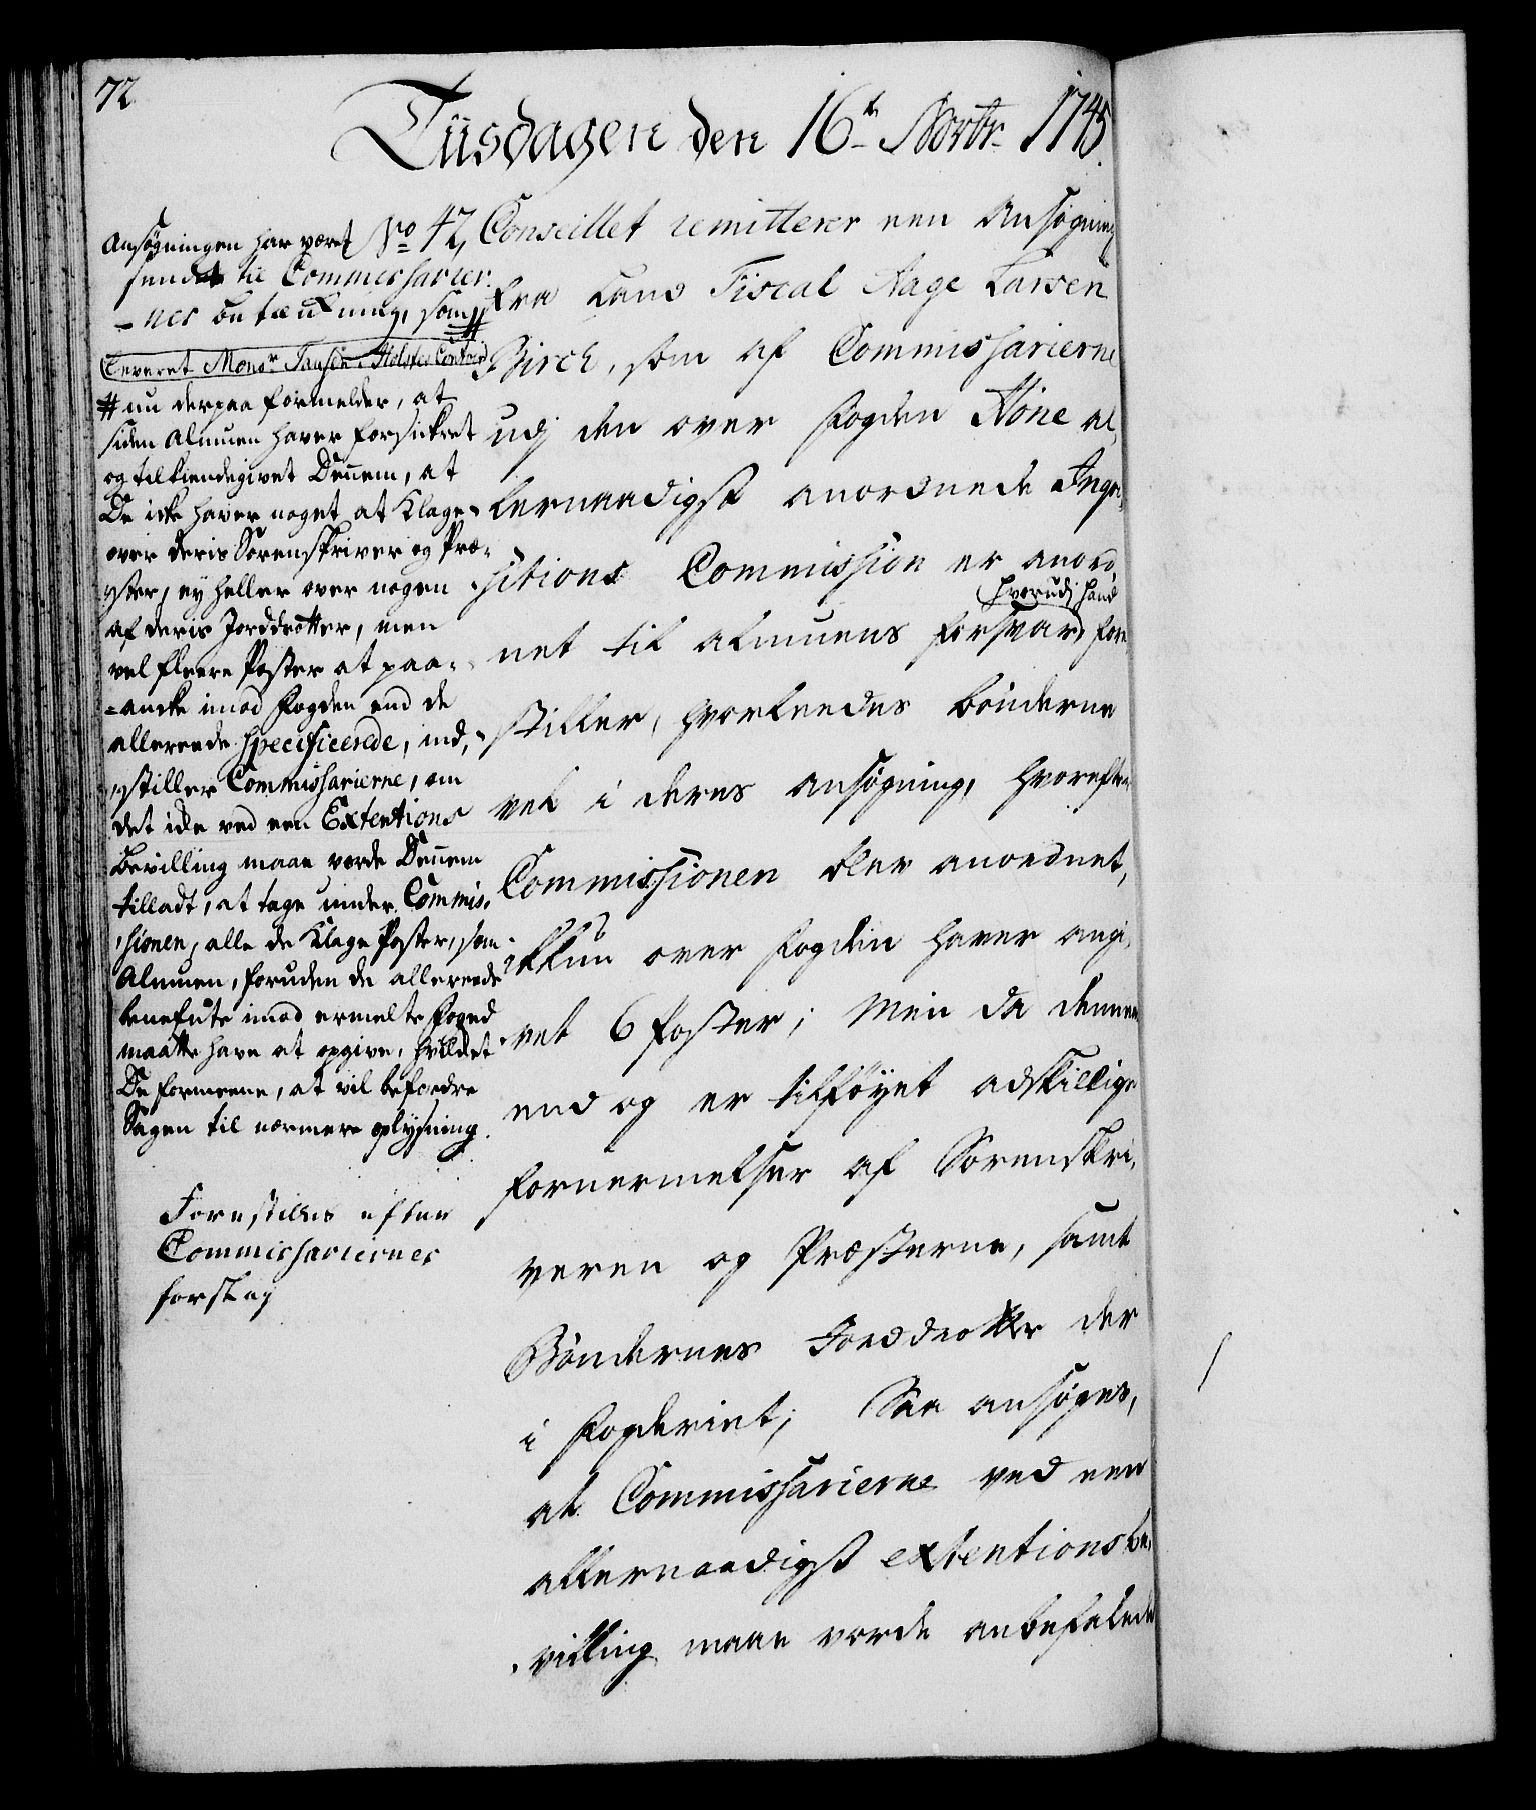 72
Tiisdagen den 16t Novbr. 1745.
Ansøgningen har været
sendt til Commissarier-
-nes betænkning, som #
Leveret Monsr Tausen Holsts Contoir
# nu derpaa formelder, at
siden Almuen haver forsickret
og tilkiendegivet Dennem, at
De icke haver noget at Klage
over deris Sorenskriver og Præ-
ster, ey heller over nogen
af deris Jorddrotter, men
vel fleere Poster at paa-
-ancke imod Fogden end de
allereede specificerede, ind-
stiller Commissarierne, om
det icke ved een Extentions
bevilling maae vorde Dennem
tilladt, at tage under Commis-
sionen, alle de Klage Poster, som
Almuen, foruden de allereede
benefnte imod ermelte Foged
maatte have at opgive, hvilcket
De formeene, at vil befordre
Sagen til nærmere oplysning.
Forestilles efter
Commissariernes
forslag
No 42, Conseillet remitterer een Ansøgning
fra Land Fiscal Aage Larsen
Birch, som af Commissarierne
udj den over Fogden Höne al-
lernaadigst anordnede Inqvi-
sitions Commission er anord-
net til almuens forsvar, hvorudj hand fore-
stiller, hvorleedes bönderne
vel i deres ansøgning, hvorefter
Commissionen blev anordnet,
ikkun over fogden haver angi-
vet 6 poster; Men da dennem
end og er tilföyet adskillige
fornermelser af Sorenskri-
veren og Præsterne, samt
Böndernes Jorddrotter der
i fogderiet; Saa ansøges,
at Commissarierne ved een
allernaadigst extentions be-
villing maae vorde anbefalede